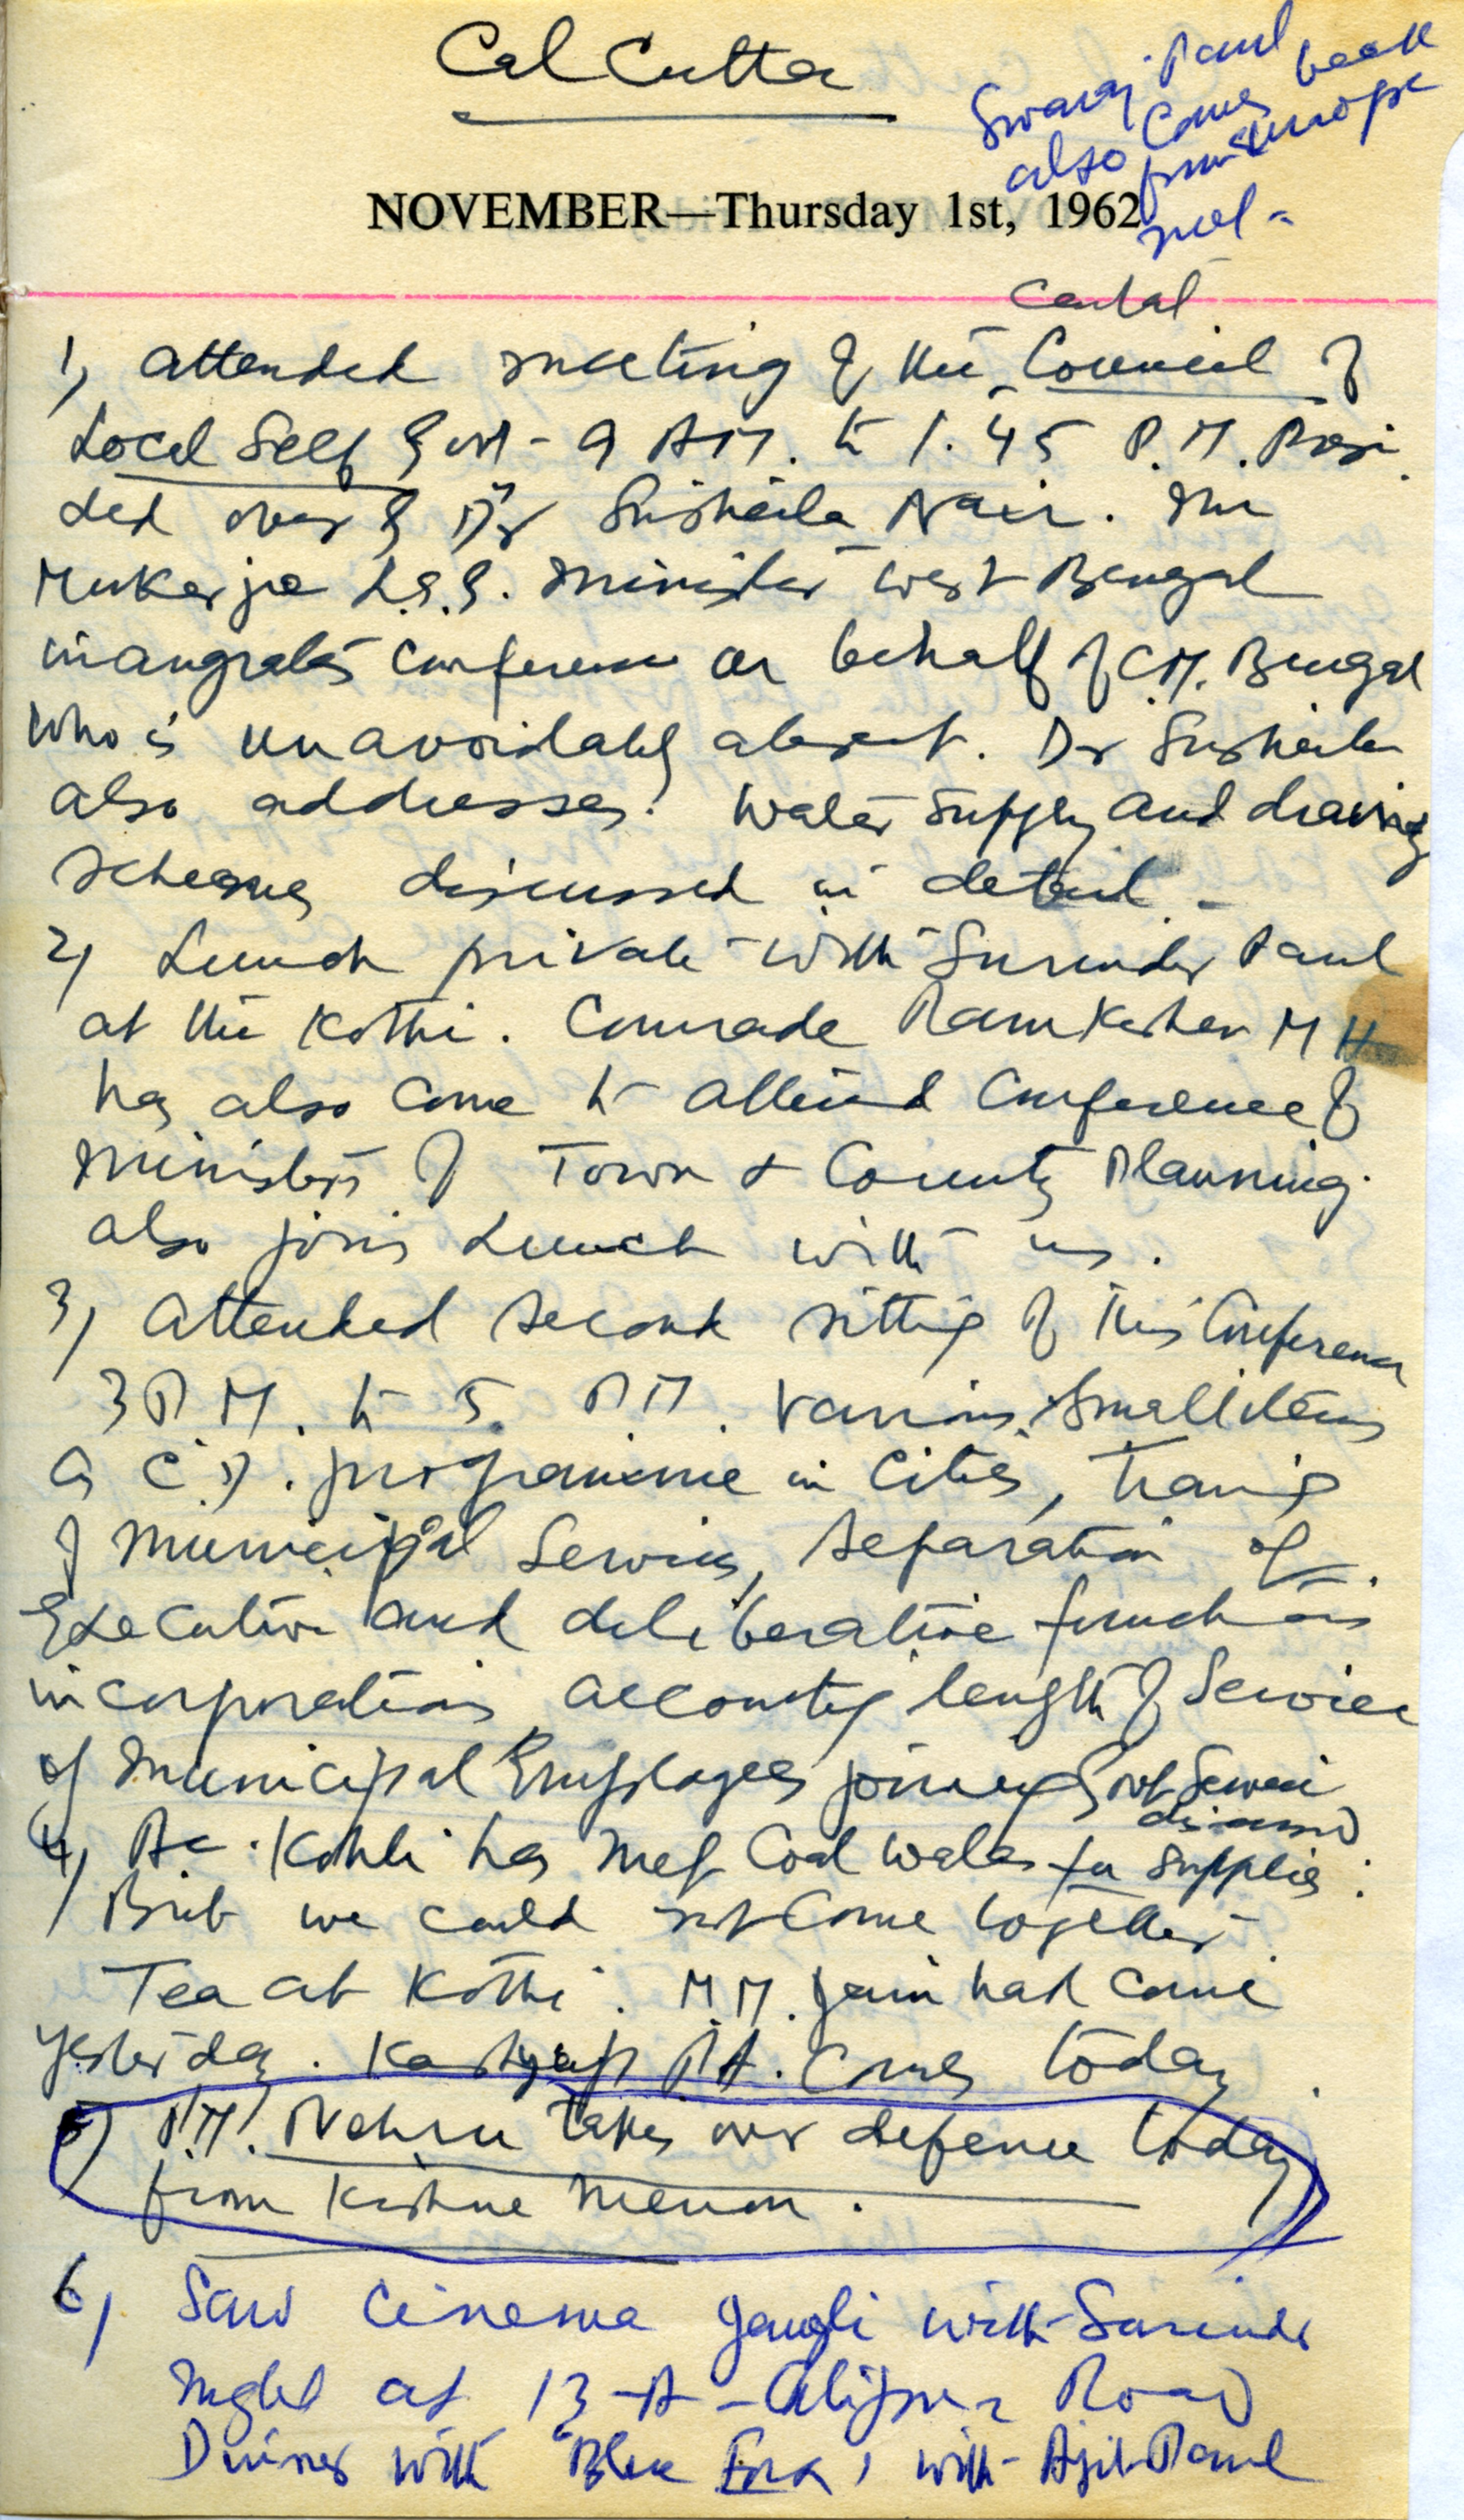 Calcutta
Swaraj Paul
also comes back
from Europe
NOVEMBER—Thursday 1st, 1962
Central
1) attended meeting of the Council of
Local Self Govt - 9 AM. to 1.45 P.M. Presi
ded over by Dr Susheila Nair.
Mukerjee L.S.G. Minister West Bengal
inaugrates Conference on behalf of C.M. Bengal
who is unavoidably absent. Dr Susheila
also addresses. Water supply and drainage
schemes discussed in detail -
2) Lunch private with Surinder Paul
at the Kothi. Comrade Ram Kishen
has also come to attend Conference of
Ministers of Town & County Planning.
also joins Lunch with us.
3) attended second sitting of this Conference
3 P.M. to 5. P.M. Various small items
as C.D. programme in cities, traing
of Municipal Services, separation of
Executive and deliberative functions
in corporations accounting length of Service
of Municipal Employees joining Govt Service
discussed
4) Kohli has met Coal walas for supplies.
But we could not come together
Tea at Kothi. M.M. Jain had come
yesterday. Kashyap P.A. comes today
5) P.M. Nehru takes over defence today
from Krishne Menon.
6) Saw cinema Jangli with Surinder
night at 13-A - Alipur Road
Dinner with Blue Fox, with Ajit Paul